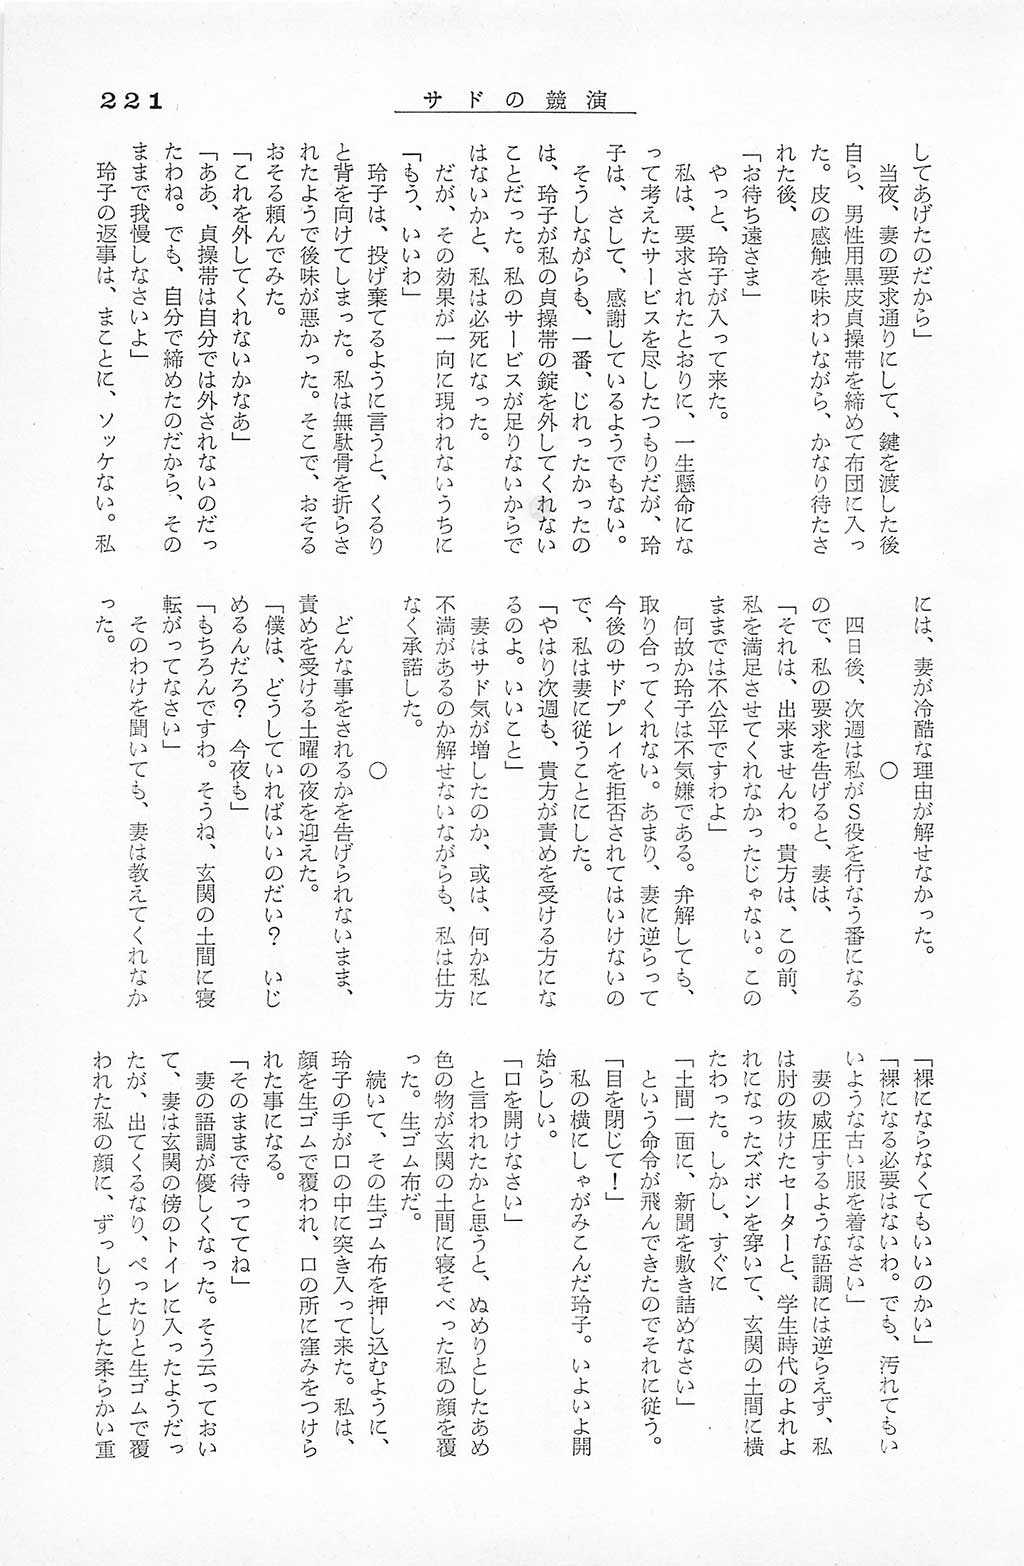 221
サドの競演
してあげたのだから」
　当夜、妻の要求通りにして、鍵を渡した後
自ら、男性用黒皮貞操帯を締めて布団に入っ
た。皮の感触を味わいながら、かなり待たさ
れた後、
「お待ち遠さま」
　やっと、玲子が入って来た。
　私は、要求されたとおりに、一生懸命にな
って考えたサービスを尽したつもりだが、玲
子は、さして、感謝しているようでもない。
　そうしながらも、一番、じれったかったの
は、玲子が私の貞操帯の錠を外してくれない
ことだった。私のサービスが足りないからで
はないかと、私は必死になった。
　だが、その効果が一向に現われないうちに
「もう、いいわ」
　玲子は、投げ棄てるように言うと、くるり
と背を向けてしまった。私は無駄骨を折らさ
れたようで後味が悪かった。そこで、おそる
おそる頼んでみた。
「これを外してくれないかなあ」
「ああ、貞操帯は自分では外されないのだっ
たわね。でも、自分で締めたのだから、その
ままで我慢しなさいよ」
　玲子の返事は、まことに、ソッケない。私
には、妻が冷酷な理由が解せなかった。
○
　四日後、次週は私がＳ役を行なう番になる
ので、私の要求を告げると、妻は、
「それは、出来ませんわ。貴方は、この前、
私を満足させてくれなかったじゃない。この
ままでは不公平ですわよ」
　何故か玲子は不気嫌である。弁解しても、
取り合ってくれない。あまり、妻に逆らって
今後のサドプレイを拒否されてはいけないの
で、私は妻に従うことにした。
「やはり次週も、貴方が責めを受ける方にな
るのよ。いいこと」
　妻はサド気が増したのか、或は、何か私に
不満があるのか解せないながらも、私は仕方
なく承諾した。
○
　どんな事をされるかを告げられないまま、
責めを受ける土曜の夜を迎えた。
「僕は、どうしていればいいのだい？　いじ
めるんだろ？　今夜も」
「もちろんですわ。そうね、玄関の土間に寝
転がってなさい」
　そのわけを聞いても、妻は教えてくれなか
った。
「裸にならなくてもいいのかい」
「裸になる必要はないわ。でも、汚れてもい
いような古い服を着なさい」
　妻の威圧するような語調には逆らえず、私
は肘の抜けたセーターと、学生時代のよれよ
れになったズボンを穿いて、玄関の土間に横
たわった。しかし、すぐに
「土間一面に、新聞を敷き詰めなさい」
　という命令が飛んできたのでそれに従う。
「目を閉じて！」
　私の横にしゃがみこんだ玲子。いよいよ開
始らしい。
「口を開けなさい」
　と言われたかと思うと、ぬめりとしたあめ
色の物が玄関の土間に寝そべった私の顔を覆
った。生ゴム布だ。
　続いて、その生ゴム布を押し込むように、
玲子の手が口の中に突き入って来た。私は、
顔を生ゴムで覆われ、口の所に窪みをつけら
れた事になる。
「そのままで待っててね」
　妻の語調が優しくなった。そう云っておい
て、妻は玄関の傍のトイレに入ったようだっ
たが、出てくるなり、ぺったりと生ゴムで覆
われた私の顔に、ずっしりとした柔らかい重